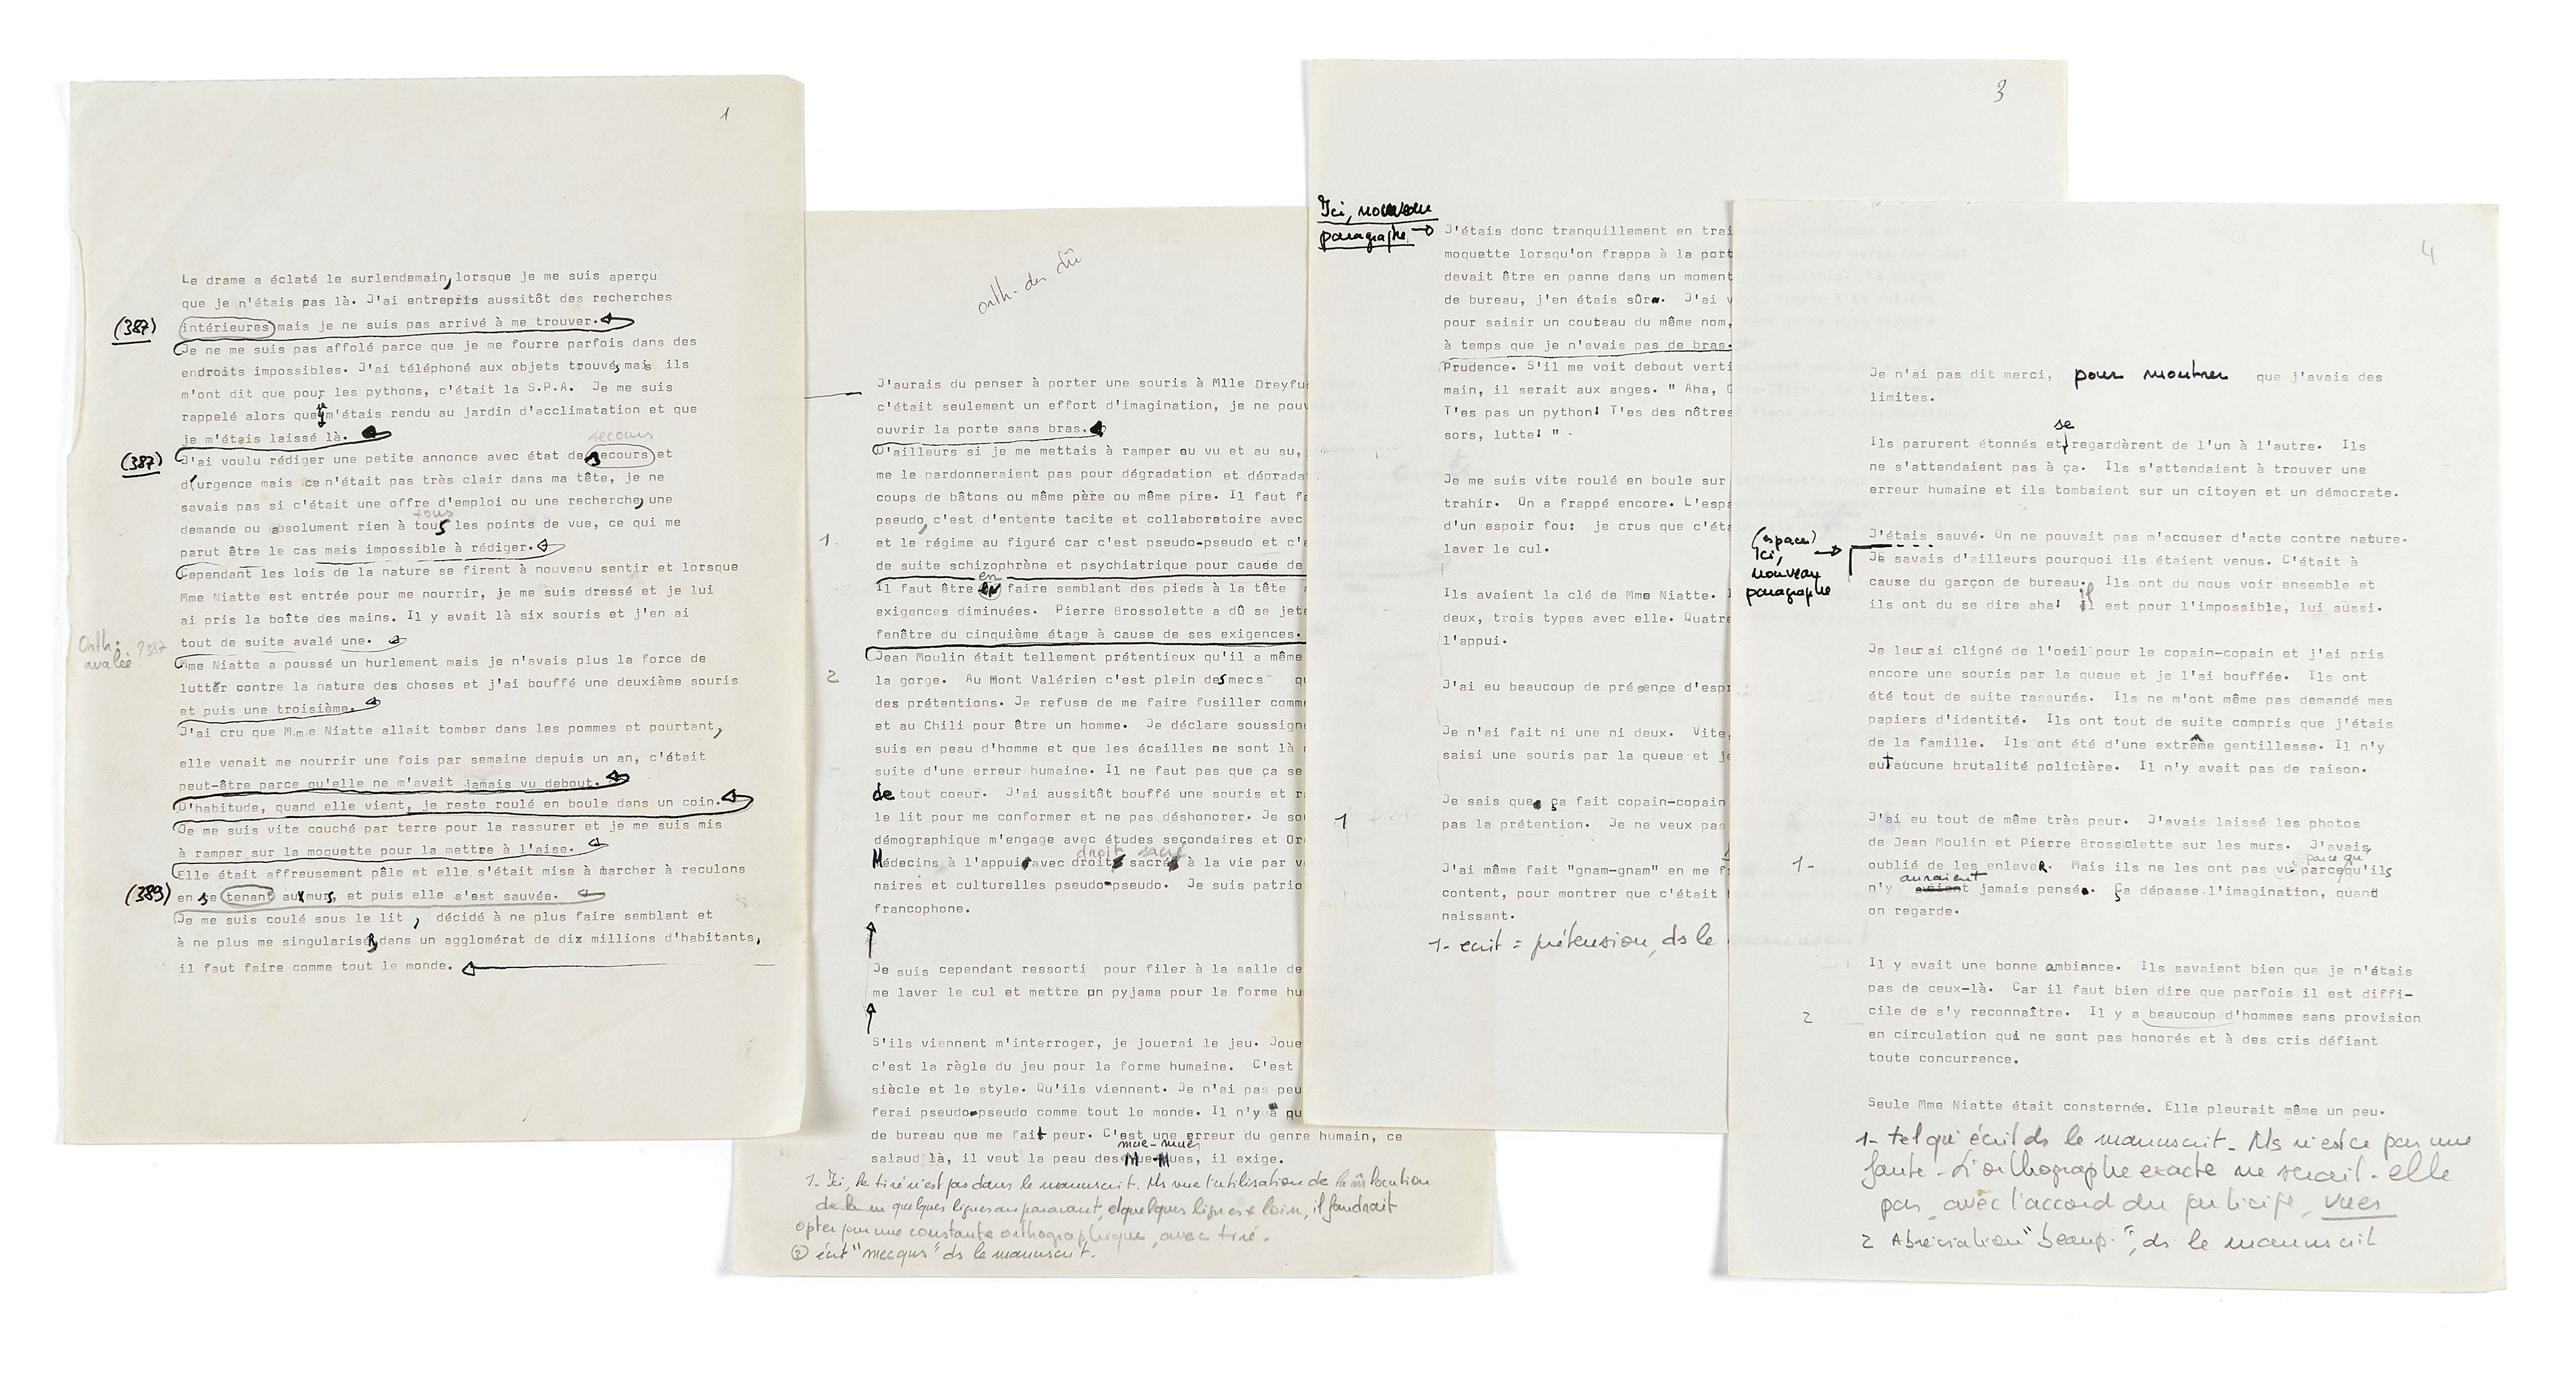 1
Le drame a éclaté le surlendemain, lorsque je me suis aperçu
que je n'étais pas là. J'ai entrepris aussitôt des recherches
(387)
intérieures mais je ne suis pas arrivé à me trouver.
Je ne me suis pas affolé parce que je me fourre parfois dans des
endroits impossibles. J'ai téléphoné aux objets trouvés, mais ils
m'ont dit que pour les pythons, c'était la S.P.A. Je me suis
rappelé alors que je m'étais rendu au jardin d'acclimatation et que
je m'étais laissé là.
secours
(387)
J'ai voulu rédiger une petite annonce avec état de secours et
d'urgence mais ce n'était pas très clair dans ma tête, je ne
savais pas si c'était une offre d'emploi ou une recherche, une
tous
demande ou absolument rien à tous les points de vue, ce qui me
parut être le cas mais impossible à rédiger.
Cependant les lois de la nature se firent à nouveau sentir et lorsque
Mme Niatte est entrée pour me nourrir, je me suis dressé et je lui
ai pris la boîte des mains. Il y avait là six souris et j'en ai
tout de suite avalé une.
Orth. : ? 387
avalée
Mme Niatte a poussé un hurlement mais je n'avais plus la force de
lutter contre la nature des choses et j'ai bouffé une deuxième souris
et puis une troisième.
J'ai cru que Mme Niatte allait tomber dans les pommes et pourtant,
elle venait me nourrir une fois par semaine depuis un an, c'était
peut-être parce qu'elle ne m'avait jamais vu debout.
D'habitude, quand elle vient, je reste roulé en boule dans un coin.
Je me suis vite couché par terre pour la rassurer et je me suis mis
à ramper sur la moquette pour la mettre à l'aise.
Elle était affreusement pâle et elle s'était mise à marcher à reculons
(389)
en se tenant aux murs, et puis elle s'est sauvée.
Je me suis coulé sous le lit, décidé à ne plus faire semblant et
à ne plus me singulariser, dans un agglomérat de dix millions d'habitants,
il faut faire comme tout le monde.
orth. du dû
J'aurais du penser à porter une souris à Mlle Dreyfus
c'était seulement un effort d'imagination, je ne pou
ouvrir la porte sans bras.
D'ailleurs si je me mettais à ramper au vu et au su,
me le pardonneraient pas pour dégradation et déprada
coups de bâtons ou même père ou même pire. Il faut fa
pseudo, c'est d'entente tacite et collaboratoire avec
1.
et le régime au figuré car c'est pseudo-pseudo et c'e
de suite schizophrène et psychiatrique pour cause de
en
Il faut être en faire semblant des pieds à la tête
exigences diminuées. Pierre Brossolette a dû se jete
fenêtre du cinquième étage à cause de ses exigences.
Jean Moulin était tellement prétentieux qu'il a même
2
la gorge. Au Mont Valérien c'est plein des mecs qu
des prétentions. Je refuse de me faire fusiller comm
et au Chili pour être un homme. Je déclare soussign
suis en peau d'homme et que les écailles ne sont là
suite d'une erreur humaine. Il ne faut pas que ça se
de tout coeur. J'ai aussitôt bouffé une souris et r
le lit pour me conformer et ne pas déshonorer. Je so
démographique m'engage avec études secondaires et Or
droit sacré
Médecins à l'appui avec droit sacré à la vie par v
naires et culturelles pseudo-pseudo. Je suis patrio
francophone.
Je suis cependant ressorti pour filer à la salle de
me laver le cul et mettre un pyjama pour la forme hu
S'ils viennent m'interroger, je jouerai le jeu. Joue
c'est la règle du jeu pour la forme humaine. C'est
siècle et le style. Qu'ils viennent. Je n'ai pas peu
ferai pseudo-pseudo comme tout le monde. Il n'y a qu
de bureau que me fait peur. C'est une erreur du genre humain, ce
mue-mues
salaud là, il veut la peau des Mue-Mues, il exige.
1- Ici, le tiré n'est pas dans le manuscrit. Ms vue l'utilisation de la m̂ locution
quelques lignes auparavant, et quelques lignes + loin, il faudrait
opter pour une constante orthographique, avec tiré.
② écrit "mecqus" ds le manuscrit.
3
Ici, nouveau
paragraphe →
J'étais donc tranquillement en trai
moquette lorsqu'on frappa à la port
devait être en panne dans un moment
de bureau, j'en étais sûr. J'ai v
pour saisir un couteau du même nom,
à temps que je n'avais pas de bras.
Prudence. S'il me voit debout verti
main, il serait aux anges. " Aha, G
T'es pas un python! T'es des nôtres
sors, lutte! "
Je me suis vite roulé en boule sur
trahir. On a frappé encore. L'espa
d'un espoir fou: je crus que c'éta
laver le cul.
Ils avaient la clé de Mme Niatte.
deux, trois types avec elle. Quatre
l'appui.
J'ai eu beaucoup de présence d'espr
Je n'ai fait ni une ni deux. Vite,
saisi une souris par la queue et je
Je sais que ça fait copain-copain
1
pas la prétention. Je ne veux pas
J'ai même fait "gnam-gnam" en me f
content, pour montrer que c'était
naissant.
1- écrit = prétension, ds le
4
Je n'ai pas dit merci, pour montrer que j'avais des
limites.
se
Ils parurent étonnés et regardèrent de l'un à l'autre. Ils
ne s'attendaient pas à ça. Ils s'attendaient à trouver une
erreur humaine et ils tombaient sur un citoyen et un démocrate.
(espace)
Ici, →
nouveau
paragraphe
J'étais sauvé. On ne pouvait pas m'accuser d'acte contre nature.
Je savais d'ailleurs pourquoi ils étaient venus. C'était à
cause du garçon de bureau. Ils ont du nous voir ensemble et
ils ont du se dire aha! il est pour l'impossible, lui aussi.
Je leur ai cligné de l'oeil pour le copain-copain et j'ai pris
encore une souris par la queue et je l'ai bouffée. Ils ont
été tout de suite rassurés. Ils ne m'ont même pas demandé mes
papiers d'identité. Ils ont tout de suite compris que j'étais
de la famille. Ils ont été d'une extrême gentillesse. Il n'y
eut aucune brutalité policière. Il n'y avait pas de raison.
J'ai eu tout de même très peur. J'avais laissé les photos
de Jean Moulin et Pierre Brossolette sur les murs. J'avais
parce qu'
1-
oublié de les enlever. Mais ils ne les ont pas vu parcequ'ils
auraient
n'y avaient jamais pensé. Ça dépasse l'imagination, quand
on regarde.
Il y avait une bonne ambiance. Ils savaient bien que je n'étais
pas de ceux-là. Car il faut bien dire que parfois il est diffi-
2
cile de s'y reconnaître. Il y a beaucoup d'hommes sans provision
en circulation qui ne sont pas honorés et à des cris défiant
toute concurrence.
Seule Mme Niatte était consternée. Elle pleurait même un peu.
1- tel qu'écrit ds le manuscrit. Ms n'est-ce pas une
faute. L'orthographe exacte ne serait-elle
pas, avec l'accord du participe, vues
2 Abréviation "beaup.", ds le manuscrit